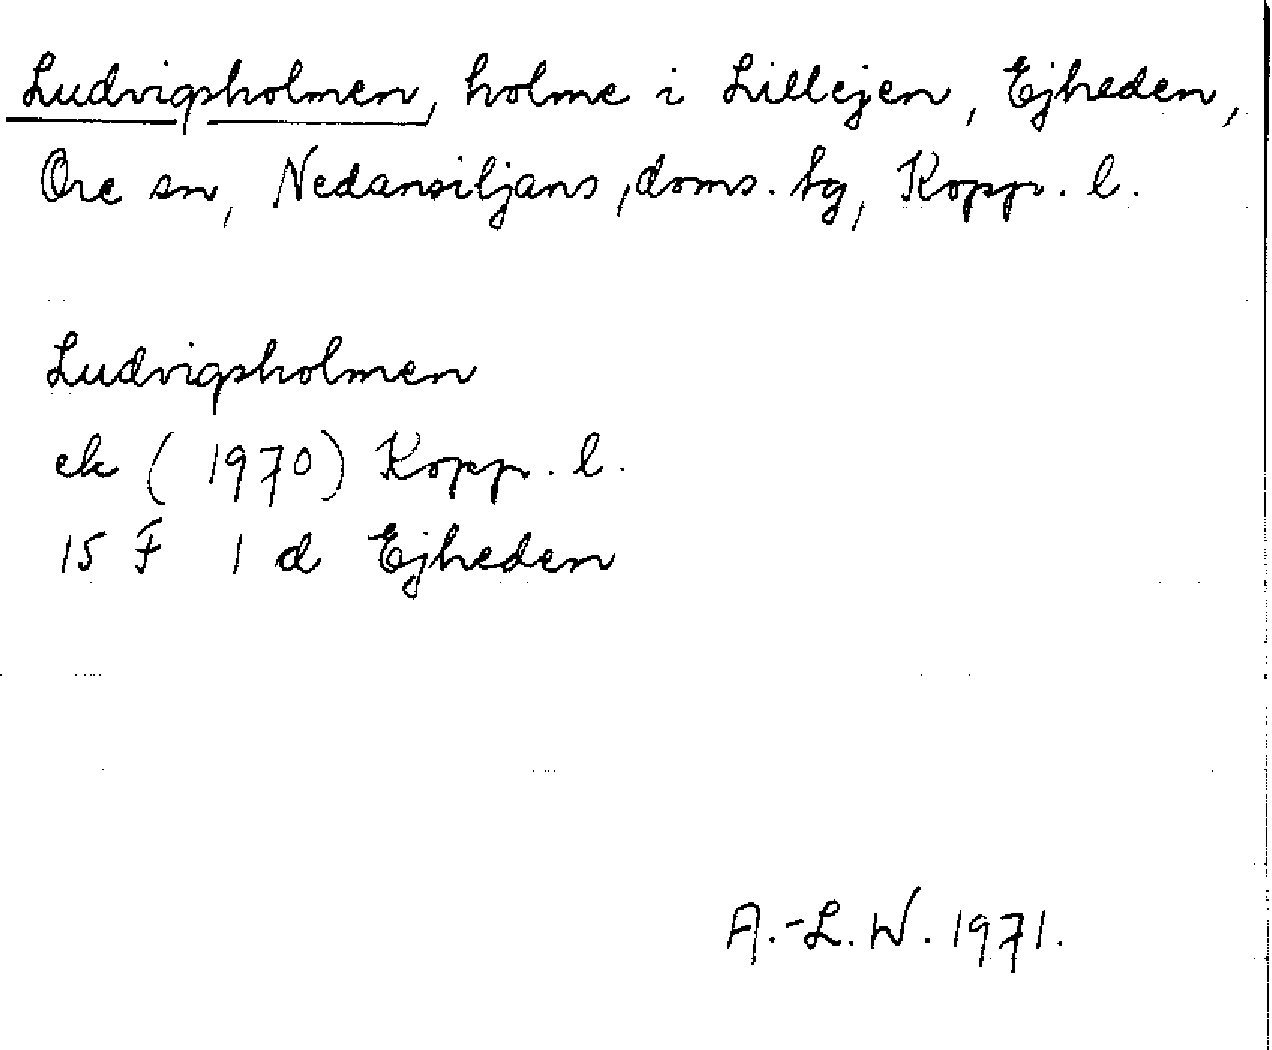 Ludvigsholmen, holme i Lillejen, Ejheden,
Ore sn, Nedansiljans, doms. tg, Kopp. l.
Ludvigsholmen
ek (1970) Kopp. l.
15 F 1 d Ejheden
A.-L. W. 1971.